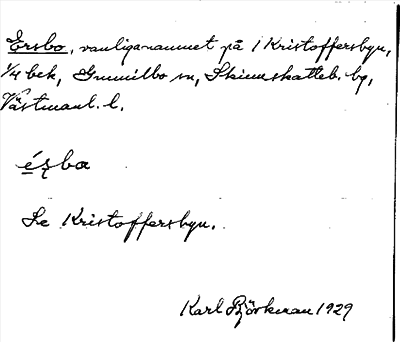 Ersbo, vanliga namnet på 1 Kristoffersbyn,
1/4 bek, Gunnilbo sn, Skinnskatteb. bg,
Västmanl. l.
ésba
Se Kristoffersbyn.
Karl Björkman 1929